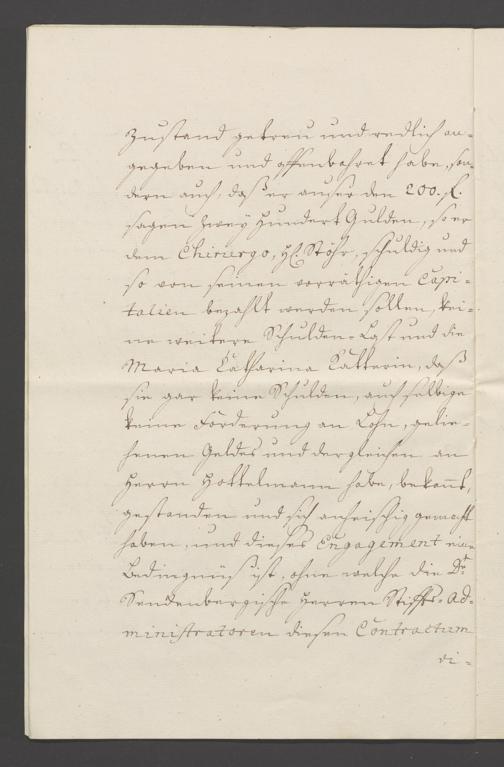 Zustand getreu und redlich an-
gegeben und offenbahret habe, son-
dern auch, daß er außer den 200. fl.
sagen Zwey Hundert Gulden, so er
dem Chirurgo, H. Stöhr, schuldig und
so von seinen vorräthigen Capi-
talien bezahlt werden sollen, kei-
ne weitere Schulden-Last und die
Maria Catharina Katterin, daß
sie gar keine Schulden, auch selbige
keine Förderung an Lohn, gelie-
henen Geldes und dergleichen an
Herrn Hottelmann habe, bekannt,
gestanden und sich anheischig gemacht
haben, und dieses Engagement eine
Bedingnüß ist, ohne welche die Dr.
Senckenbergische Herren Stiffts-Ad-
ministratoren diesen Contractum